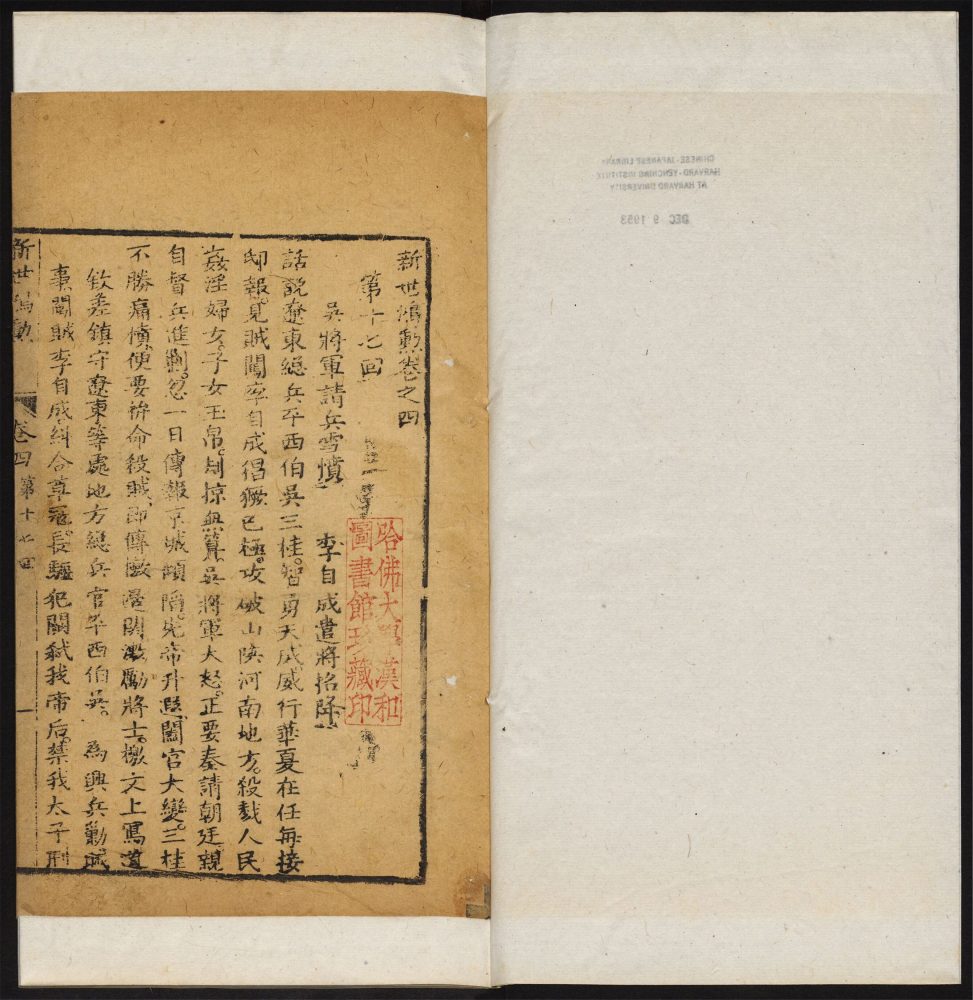 新世鴻勲卷之四
第十七回
吳將軍請兵雪憤　李自成遣將招降
話説遼東總兵平西伯吳三桂。智勇天成。威行華夏在任每接
邸報。見賊闖李自成猖獗已極。攻破山陝河南地方。殺戮人民
姦淫婦女。子女玉帛。刦掠無算。吳將軍大怒。正要奏請朝廷親
自督兵進剿。忽一日傳報京城頽陷。先帝升遐。闔官大變。三桂
不勝痛憤。便要拚命殺賊。即傳檄邊関。激勵將士。檄文上寫道
欽差鎮守遼東等處地方總兵官平西伯吳。為興兵勦賊
事闖賊李自成。糾合草冦。長驅犯闕。弑我帝后。禁我太子。刑
新世鴻勲　卷四　第十七回　一
哈佛大學漢和
圖書館珍藏印
CHINESE-JAPANESE LIBRARY
HARVARD-YENCHING INSTITUTE
AT HARVARD UNIVERSITY
DEC 9 1953